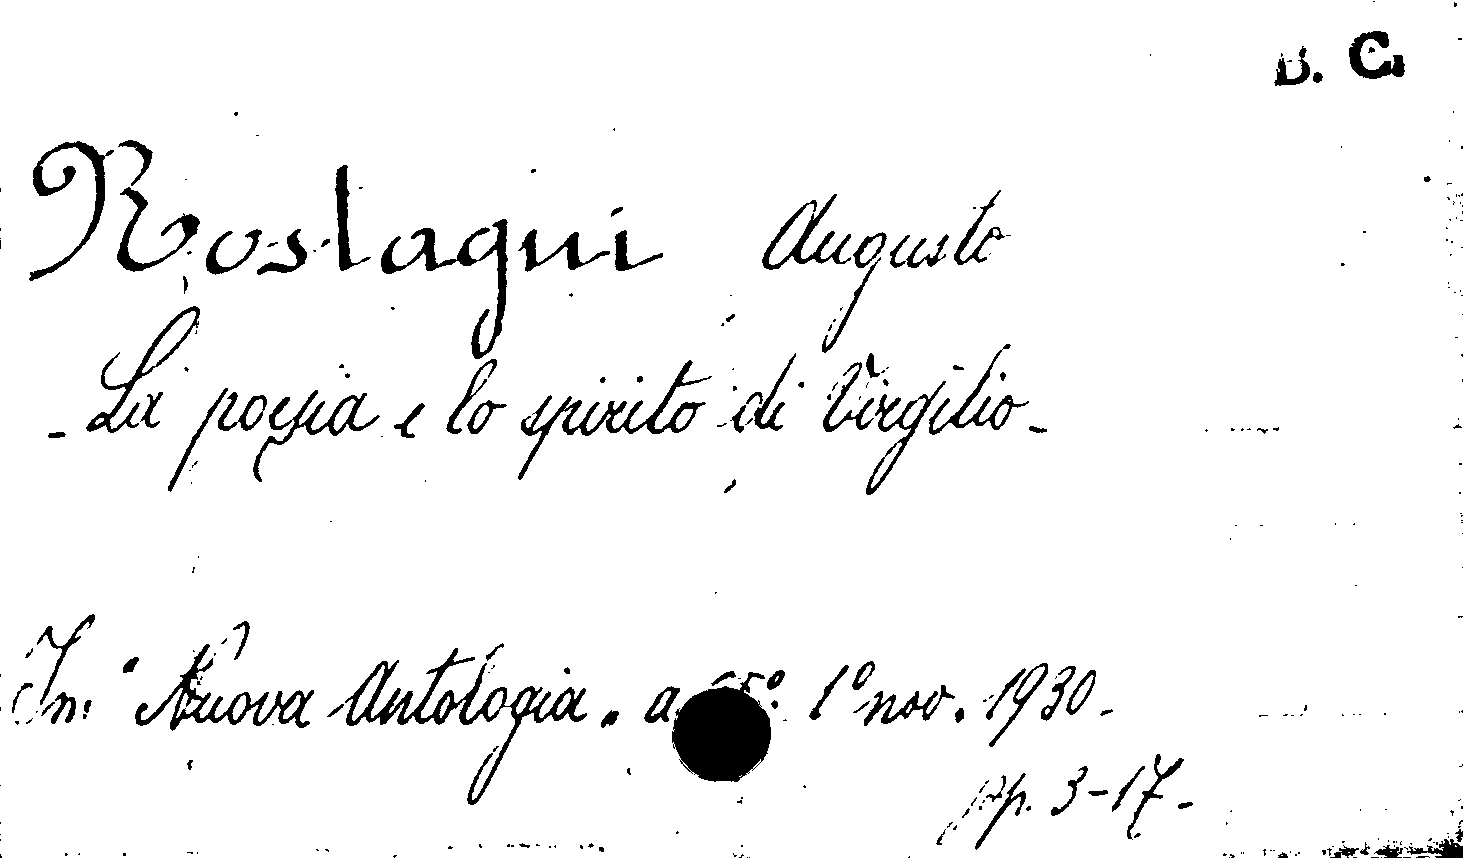 B. C.
Rostagni Augusto
- La poesia e lo spirito di Virgilio -
In: "Nuova Antologia" a. 1º nov. 1930 -
pp. 3-17 -